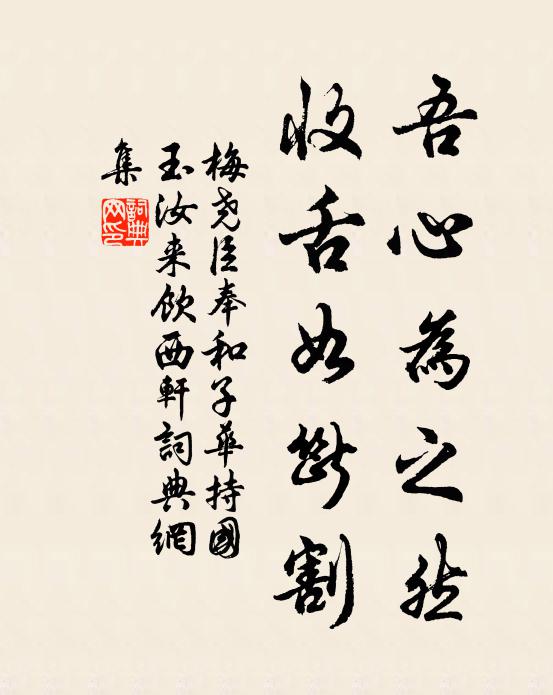 吾心為之然
收舌如斷割
梅堯臣奉和子華持國
玉汝来飲西軒詞典網
集
詞典
网印